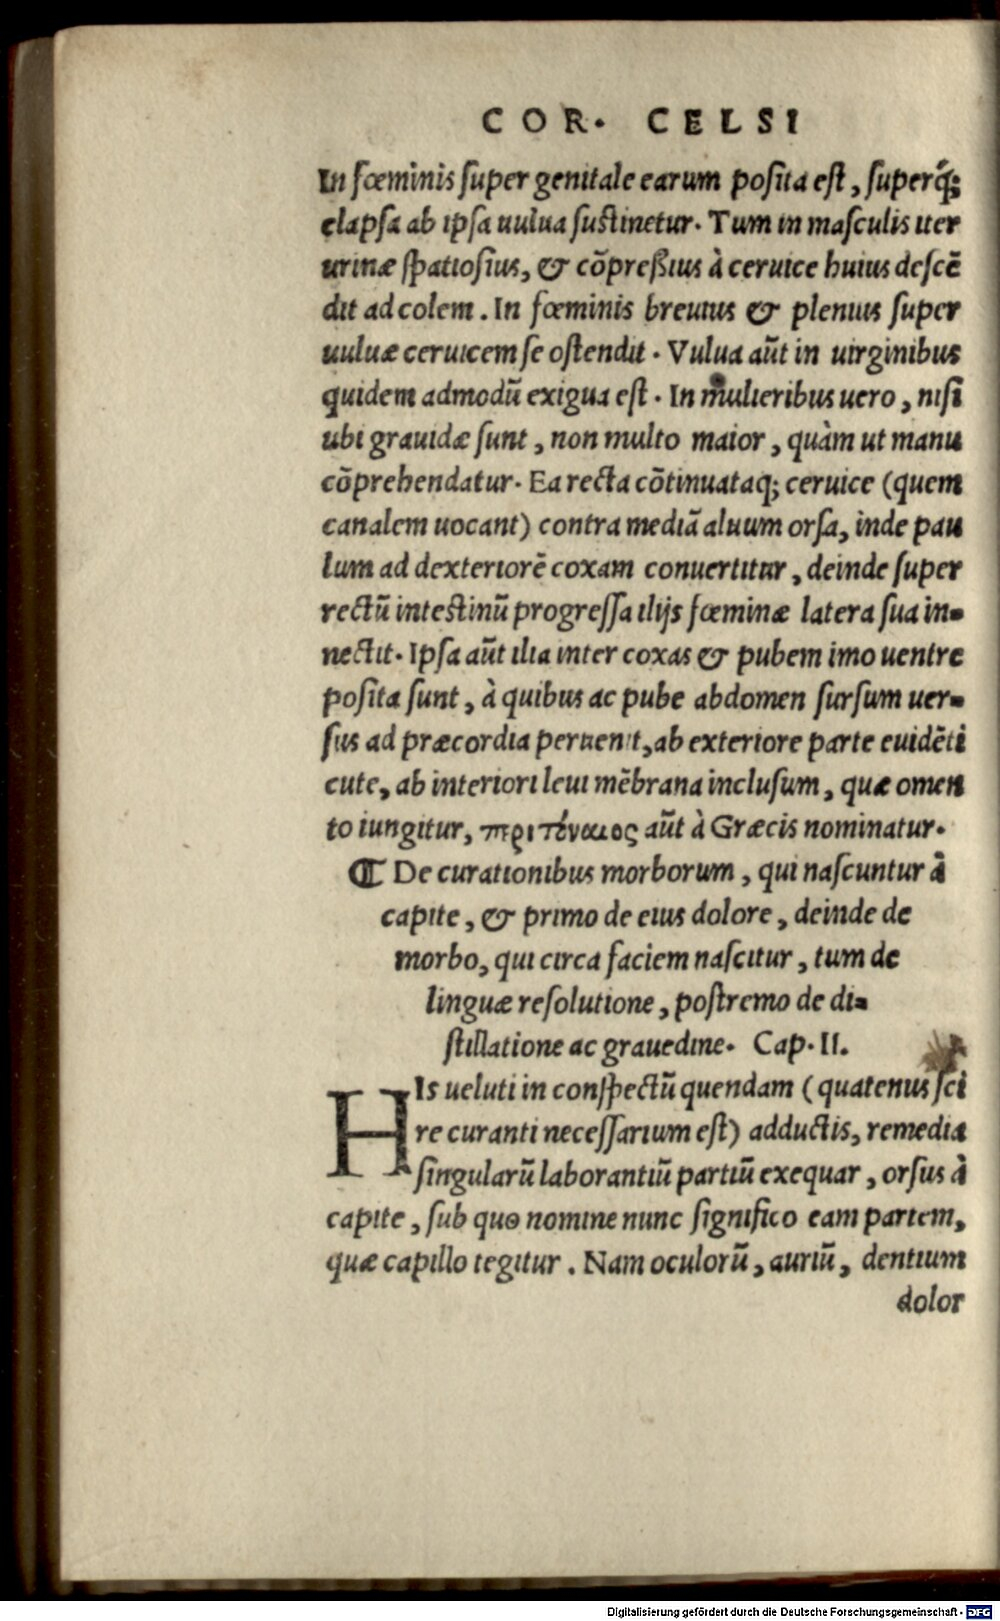 COR. CELSI
In fœminis super genitale earum posita est, superq́;
elapsa ab ipsa uulua sustinetur. Tum in masculis iter
urinæ spatiosius, & cōpreßius à ceruice huius descē
dit ad colem. In fœminis breuius & plenius super
uuluæ ceruicem se ostendit. Vulua aūt in uirginibus
quidem admodū exigua est. In mulieribus uero, nisi
ubi grauidæ sunt, non multo maior, quàm ut manu
cōprehendatur. Ea recta cōtinuataq; ceruice (quem
canalem uocant) contra mediā aluum orsa, inde pau
lum ad dexteriorē coxam conuertitur, deinde super
rectū intestinū progressa ilijs fœminæ latera sua in-
nectit. Ipsa aūt ilia inter coxas & pubem imo uentre
posita sunt, à quibus ac pube abdomen sursum uer-
sus ad præcordia peruenit, ab exteriore parte euidēti
cute, ab interiori leui mēbrana inclusum, quæ omen
to iungitur, περιτέναιος aūt à Græcis nominatur.
¶ De curationibus morborum, qui nascuntur à
capite, & primo de eius dolore, deinde de
morbo, qui circa faciem nascitur, tum de
linguæ resolutione, postremo de di-
stillatione ac grauedine. Cap. II.
HIs ueluti in conspectū quendam (quatenus sci
re curanti necessarium est) adductis, remedia
singularū laborantiū partiū exequar, orsus à
capite, sub quo nomine nunc significo eam partem,
quæ capillo tegitur. Nam oculorū, auriū, dentium
dolor
Digitalisierung gefördert durch die Deutsche Forschungsgemeinschaft - DFG